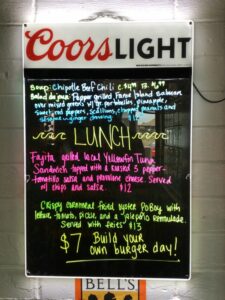 Coors LIGHT
Soup: Chipotle Beef Chili c. 4.99 b. 6.99
Salad du jour: Pepper grilled Fanne Island Salmon
over mixed greens w/ portobellos, pineapple,
roasted peppers, scallions, chopped peanuts and
sesame-ginger dressing
LUNCH
Fajita grilled local Yellowfin Tuna
Sandwich topped with a roasted 3 pepper-
tomatillo salsa and provolone cheese. Served
w/ chips and salsa. $12
Crispy cornmeal fried oyster PoBoy with
lettuce, tomato, pickle, and a jalapeño remoulade.
Served with fries $13
$7 Build your
own burger day!
BELL'S